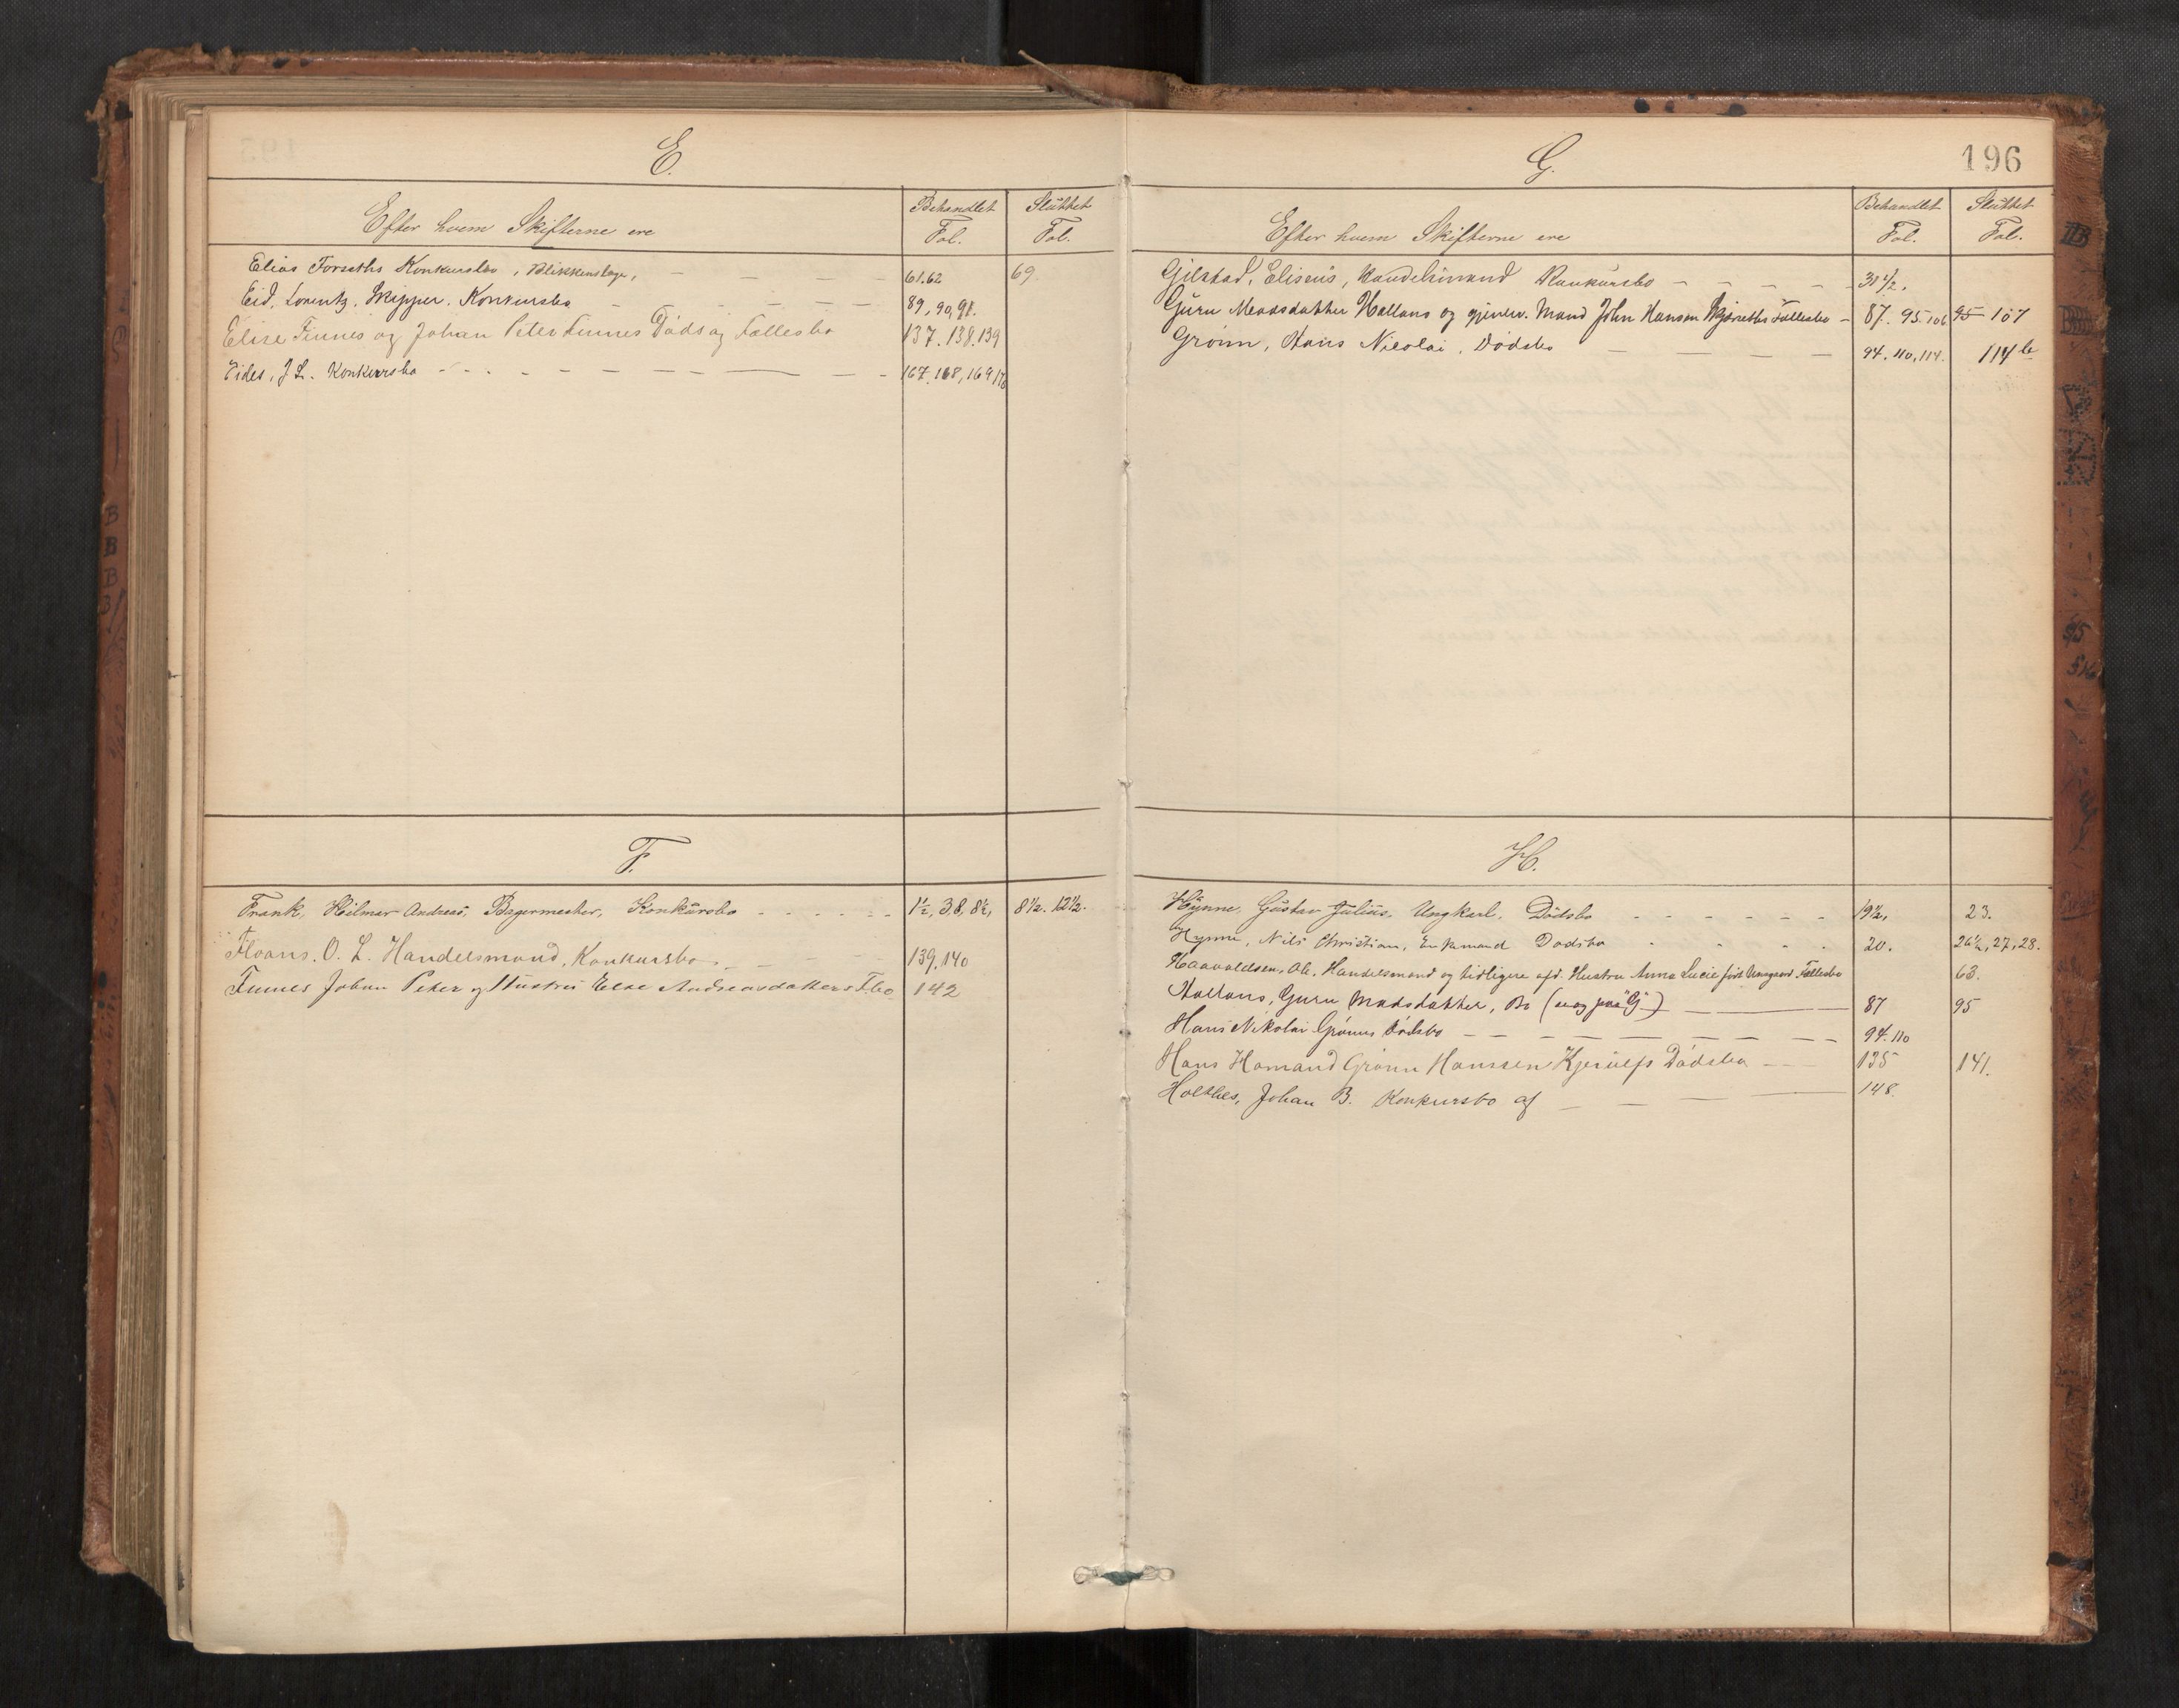 E.
Efter hvem Skifterne ere
Behandlet Fol.
Sluttet Fol.
Elias Forseths Konkursbo, Blikkenslager, 61.62 69.
Eid, Lorentz, Skipper. Konkursbo 89, 90, 98.
Elise Finnes og Johan Peter Finnes Døds og Fællesbo 137. 138. 139
Eides, J. L. Konkursbo 167, 168, 169
F.
Frank, Hilmar Andreas, Bagermester, Konkursbo 1½, 3.8, 8½, 8½. 12½.
Floans. O. L. Handelsmand, Konkursbo. 139. 140
Finnes Johan Peter og Hustru Else Andreasdatters F.bo 142
196
G.
Efter hvem Skifterne ere
Behandlet Fol.
Sluttet Fol.
Gilstad, Eliseus, Handelsmand Konkursbo 31½.
Guru Madsdatter Hallans og gjenlev. Mand John Hansen Fællesbo 87. 95. 106 95 107
Grønn, Hans Nicolai, Dødsbo 94. 110, 114. 114 b
H.
Hynne, Gustav Julius, Ungkarl, Dødsbo 19½, 23.
Hynne, Nils Christian, Enkemand Dødsbo 20. 26½, 27, 28.
Haavaldsen, Ole, Handelsmand og tidligere afd. Hustru Anna Lucie født Fællesbo 63.
Hallans, Guru Madsdatter, Bo (se og paa "G") 87 95
Hans Nikolai Grønns Dødsbo 94. 110
Hans Hamand Grønn Hanssen Kjerulfs Dødsbo 135 141.
Holthes, Johan B. Konkursbo af 148.